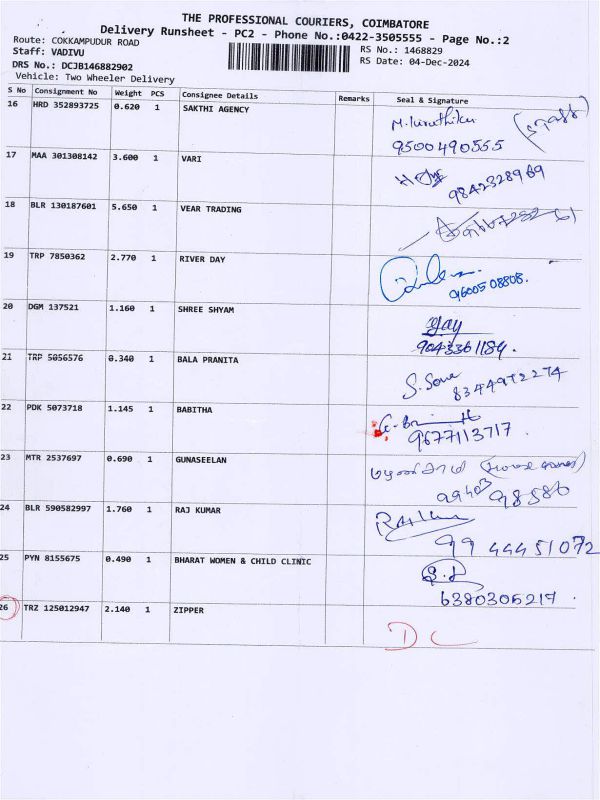 THE PROFESSIONAL COURIERS, COIMBATORE
Delivery Runsheet - PC2 - Phone No.:0422-3505555 - Page No.:2
Route: COKKAMPUDUR ROAD
Staff: VADIVU
RS No.: 1468829
DRS No.: DCJB146882902
RS Date: 04-Dec-2024
Vehicle: Two Wheeler Delivery
S No Consignment No Weight PCS Consignee Details Remarks Seal & Signature
16 HRD 352893725 0.620 1 SAKTHI AGENCY
9500490555
17 MAA 301308142 3.600 1 VARI
9842328969
18 BLR 130187601 5.650 1 VEAR TRADING
19 TRP 7850362 2.770 1 RIVER DAY
9600508808.
20 DGM 137521 1.160 1 SHREE SHYAM
9043361184.
21 TRP 5056576 0.340 1 BALA PRANITA
8344972274
22 PDK 5073718 1.145 1 BABITHA
9677113717
23 MTR 2537697 0.690 1 GUNASEELAN
99403 98586
24 BLR 590582997 1.760 1 RAJ KUMAR
99 44451072
25 PYN 8155675 0.490 1 BHARAT WOMEN & CHILD CLINIC
6380306217.
26 TRZ 125012947 2.140 1 ZIPPER
DC